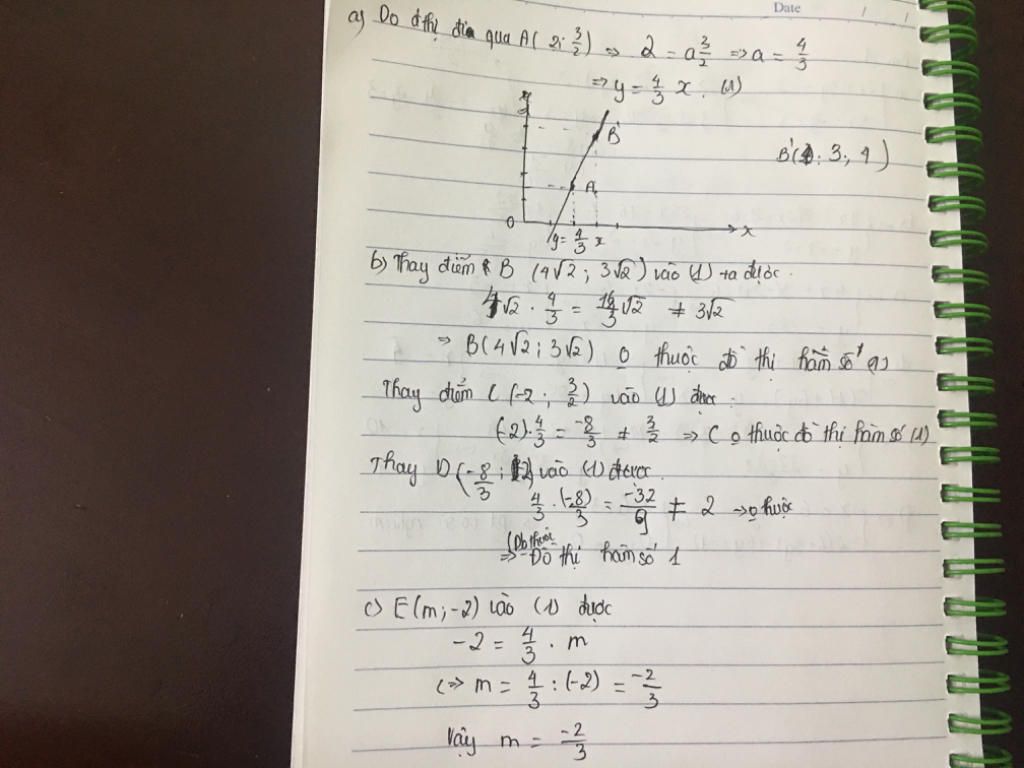 Date / /
a) Do đthị đia qua A( 2; 3/2 ) ⇒ 2 = a 3/2 ⇒ a = 4/3
⇒ y = 4/3 x. (1)
y
B'
B'( ; 3; 4 )
A
O
y = 4/3 x
x
b) Thay điểm B (4√2 ; 3√2 ) vào (1) ta được.
4√2 . 4/3 = 16/3 √2 ≠ 3√2
⇒ B( 4√2 ; 3√2 ) o thuộc đồ thị hàm số (1)
Thay điểm C (-2 ; 3/2 ) vào (1) được :
(-2) . 4/3 = -8/3 ≠ 3/2 ⇒ C o thuộc đồ thị hàm số (1)
Thay D (-8/3 ; 2) vào (1) được
4/3 . (-8)/3 = -32/9 ≠ 2 → o thuộc
(Do thuộc
⇒ Đồ thị hàm số 1
c) E (m; -2) vào (1) được
-2 = 4/3 . m
<=> m = 4/3 : (-2) = -2/3
Vậy m = -2/3